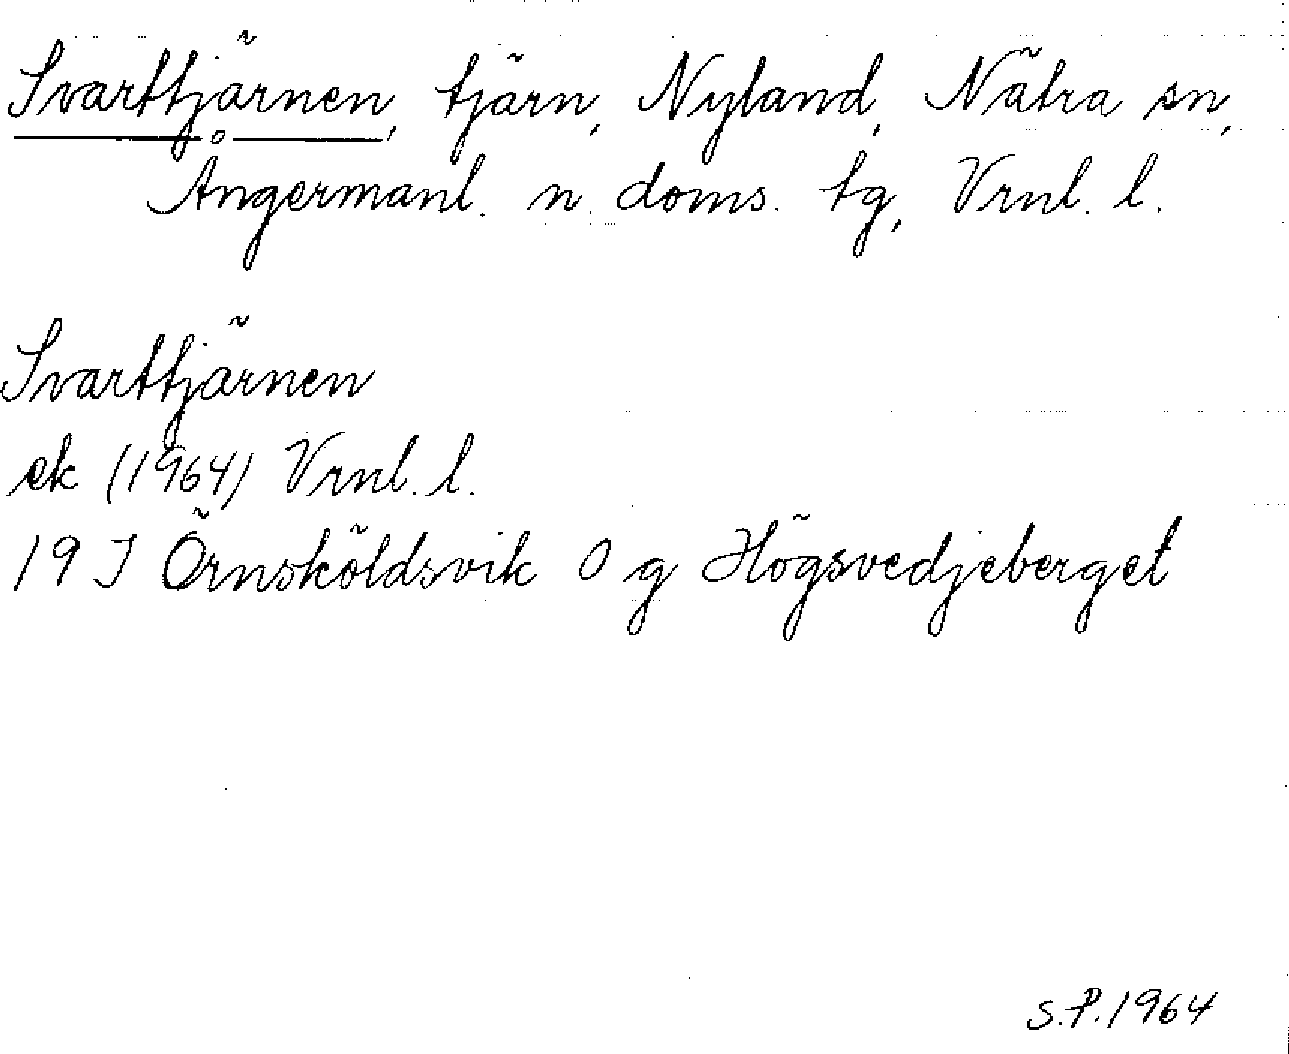 Svarttjärnen, tjärn, Nyland, Nätra sn,
Ångermanl. n. doms. tg, Vrnl. l.
Svarttjärnen
ek (1964) Vrnl. l.
19 J Örnsköldsvik 0 g Högsvedjeberget
S.P. 1964